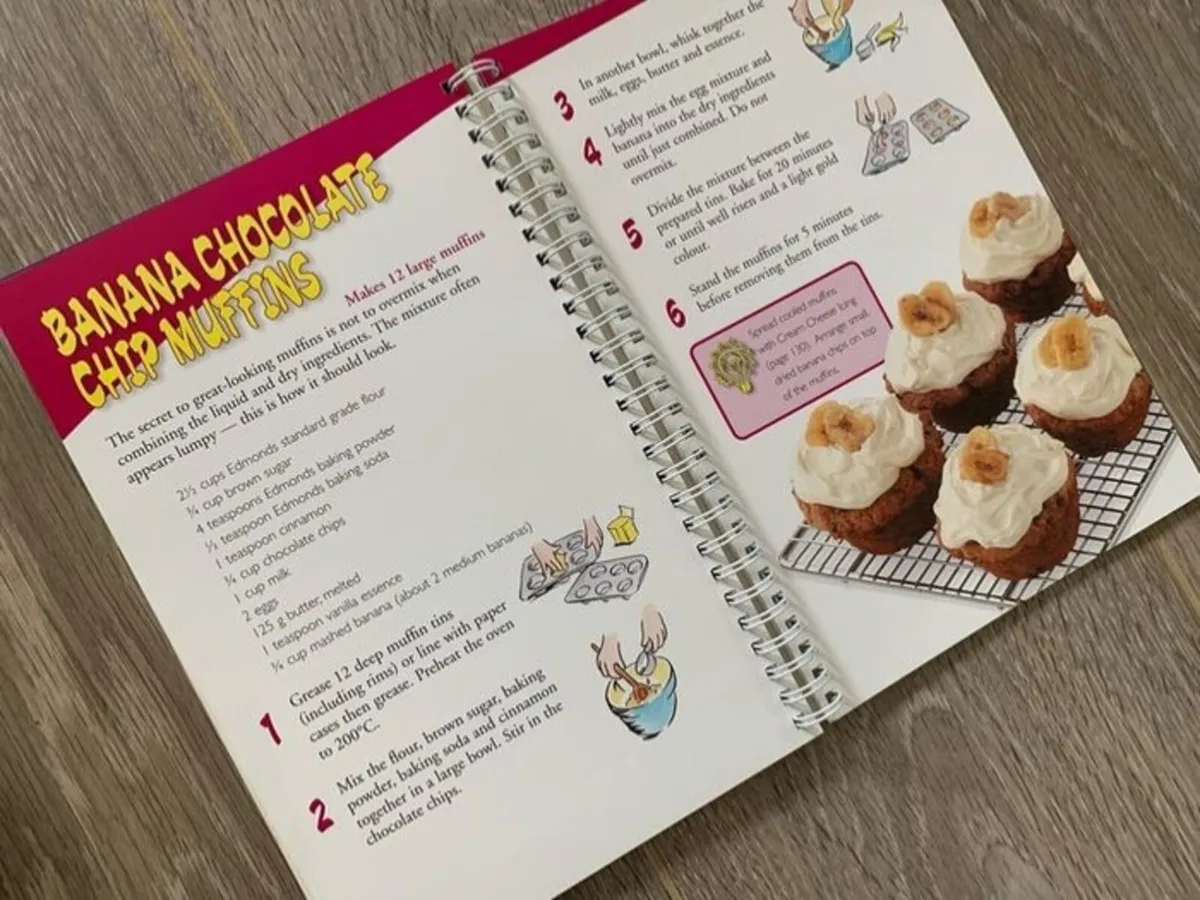 BANANA CHOCOLATE
CHIP MUFFINS
Makes 12 large muffins
The secret to great-looking muffins is not to overmix when
combining the liquid and dry ingredients. The mixture often
appears lumpy — this is how it should look.
2½ cups Edmonds standard grade flour
¾ cup brown sugar
4 teaspoons Edmonds baking powder
½ teaspoon Edmonds baking soda
1 teaspoon cinnamon
¾ cup chocolate chips
1 cup milk
2 eggs
125 g butter, melted
1 teaspoon vanilla essence
¾ cup mashed banana (about 2 medium bananas)
1 Grease 12 deep muffin tins
(including rims) or line with paper
cases then grease. Preheat the oven
to 200°C.
2 Mix the flour, brown sugar, baking
powder, baking soda and cinnamon
together in a large bowl. Stir in the
chocolate chips.
3 In another bowl, whisk together the
milk, eggs, butter and essence.
4 Lightly mix the egg mixture and
banana into the dry ingredients
until just combined. Do not
overmix.
5 Divide the mixture between the
prepared tins. Bake for 20 minutes
or until well risen and a light gold
colour.
6 Stand the muffins for 5 minutes
before removing them from the tins.
Spread cooled muffins
with Cream Cheese Icing
(page 130). Arrange small
dried banana chips on top
of the muffins.